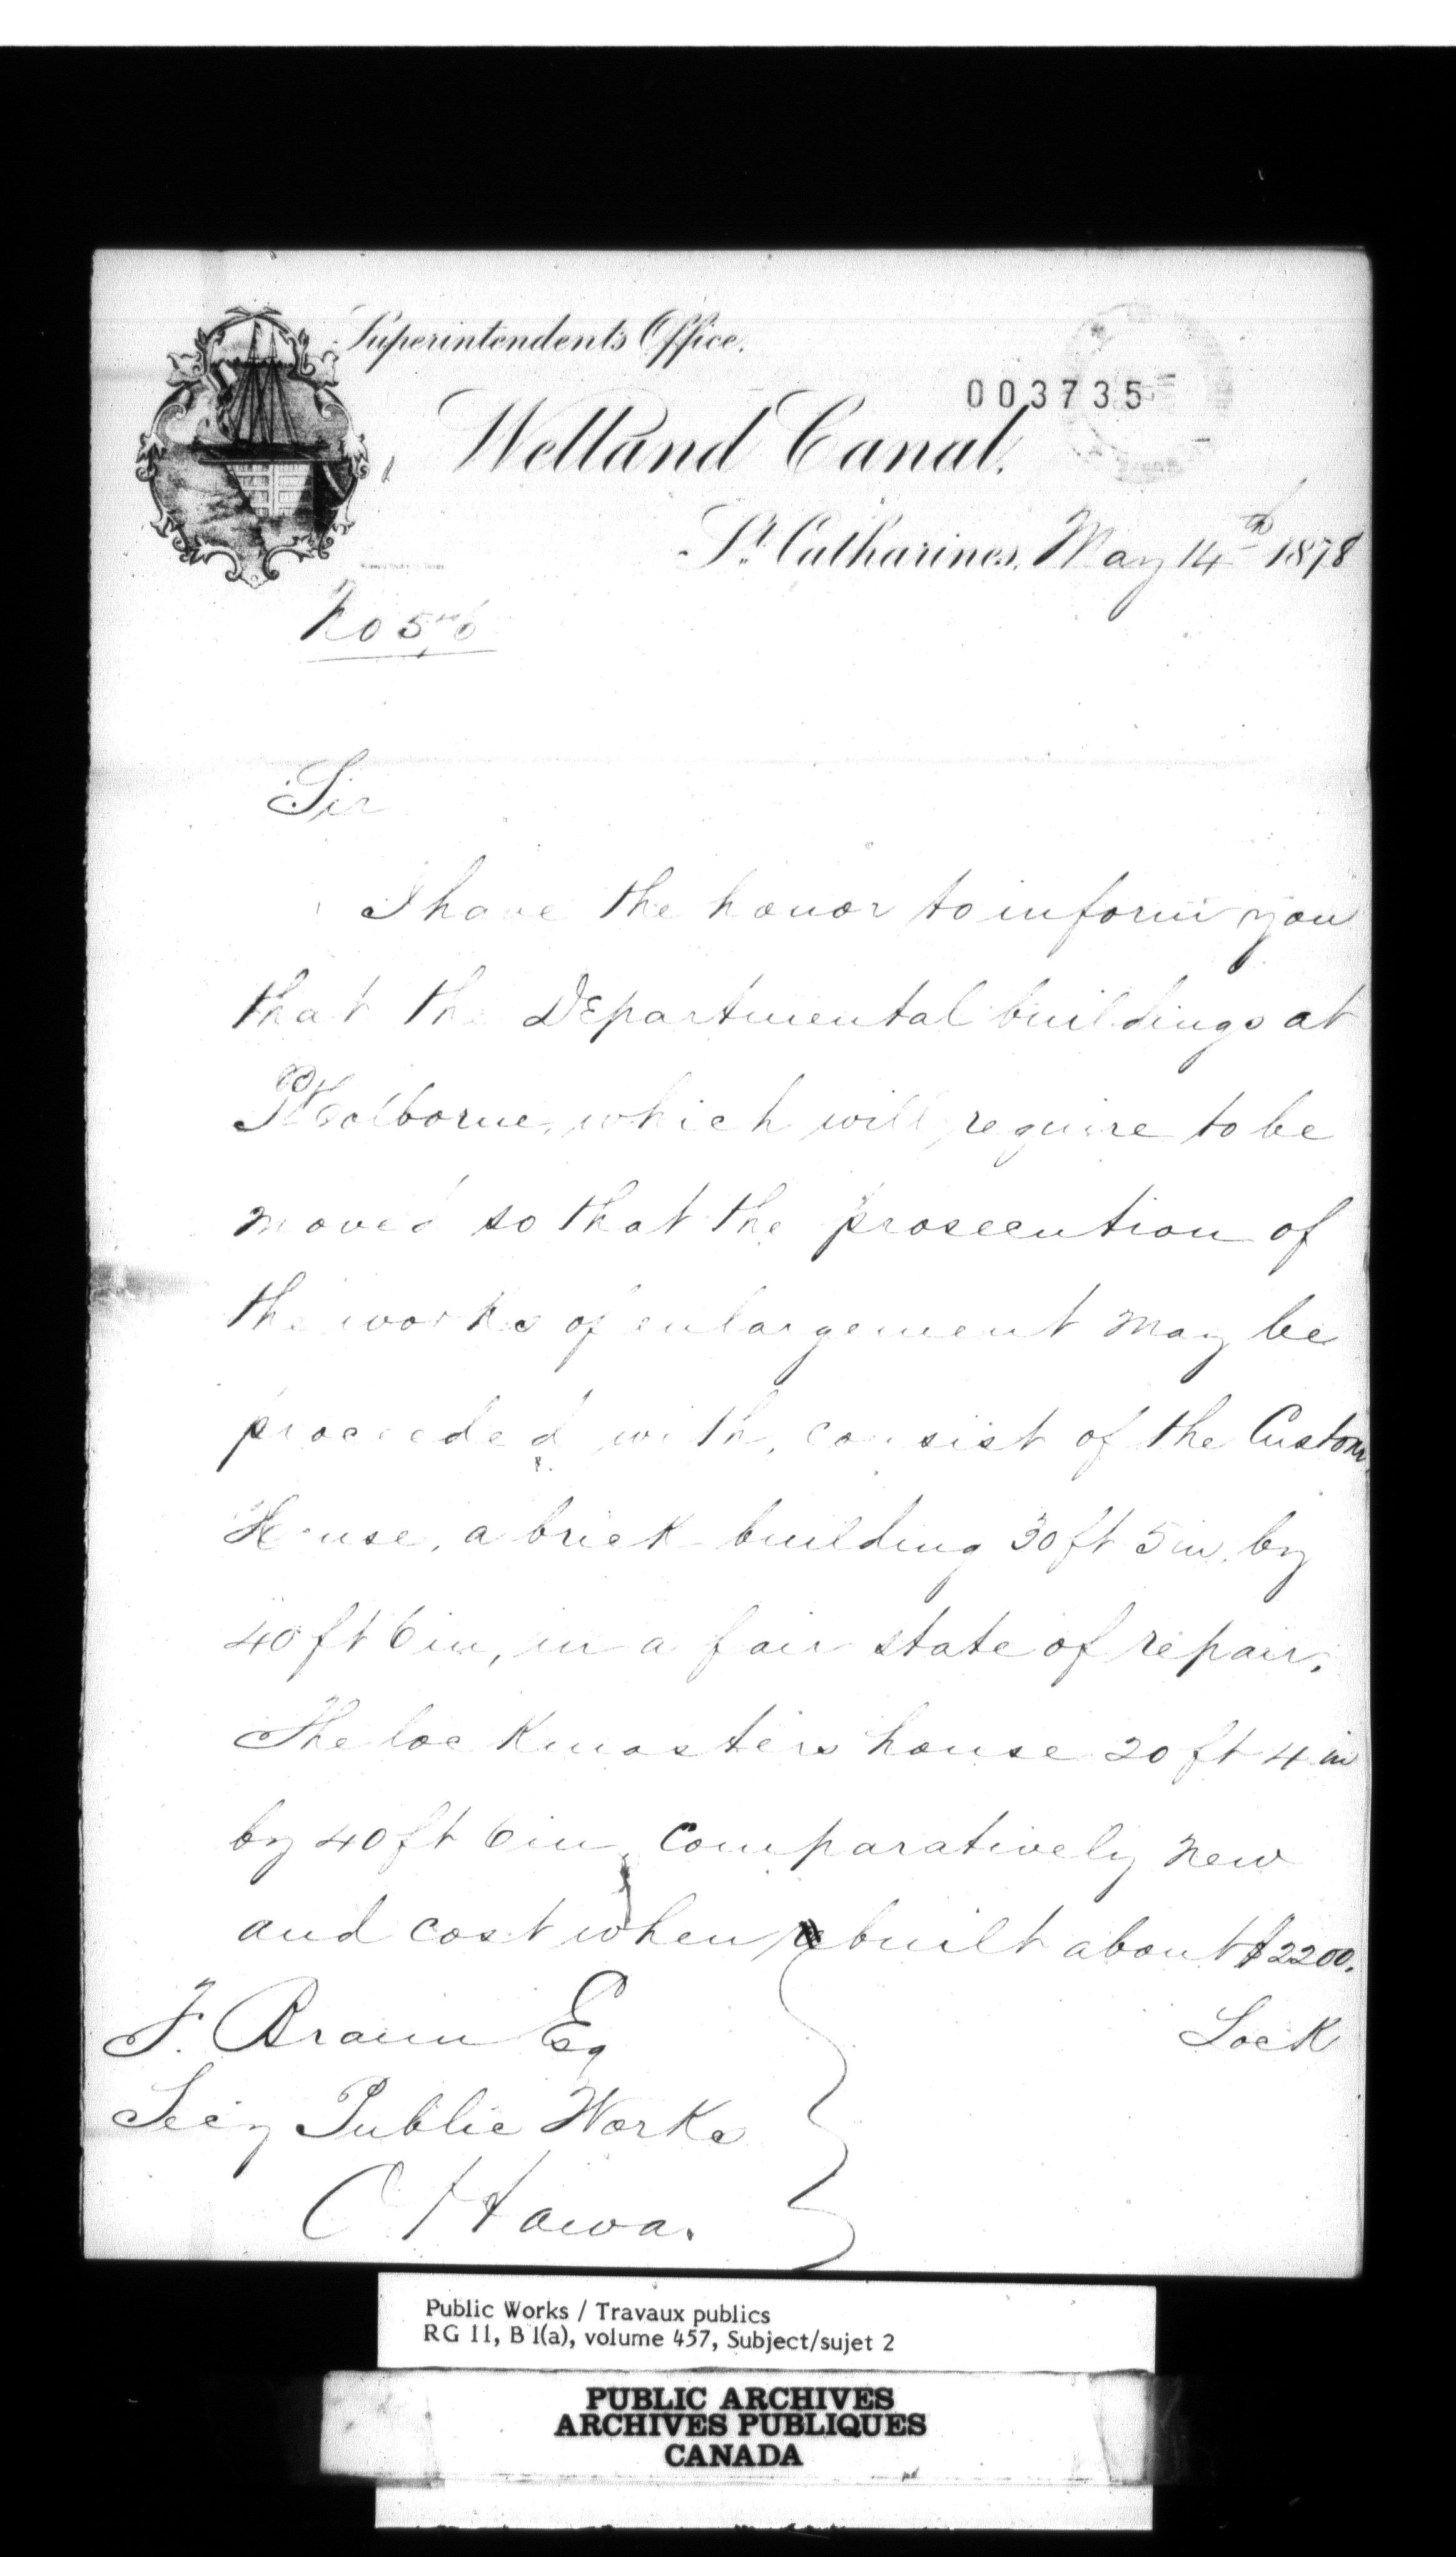 Superintendent's Office.
003735
Welland Canal.
St. Catharines, May 14th 1878
No
Sir
I have the honor to inform you
that the Departmental buildings at
Pt Colborne, which will require to be
moved so that the prosecution of
the works of enlargement may be
proceeded with, consist of the Custom
House, a brick building 30 ft 5 in. by
40 ft 6 in, in a fair state of repair.
The lockmasters house 20 ft 4 in
by 40 ft 6 in, comparatively new
and cost when built about $2200.
Lock
F. Braun Esq
Secy Public Works
Ottawa.
Public Works / Travaux publics
RG 11, B 1(a), volume 457, Subject/sujet 2
PUBLIC ARCHIVES
ARCHIVES PUBLIQUES
CANADA